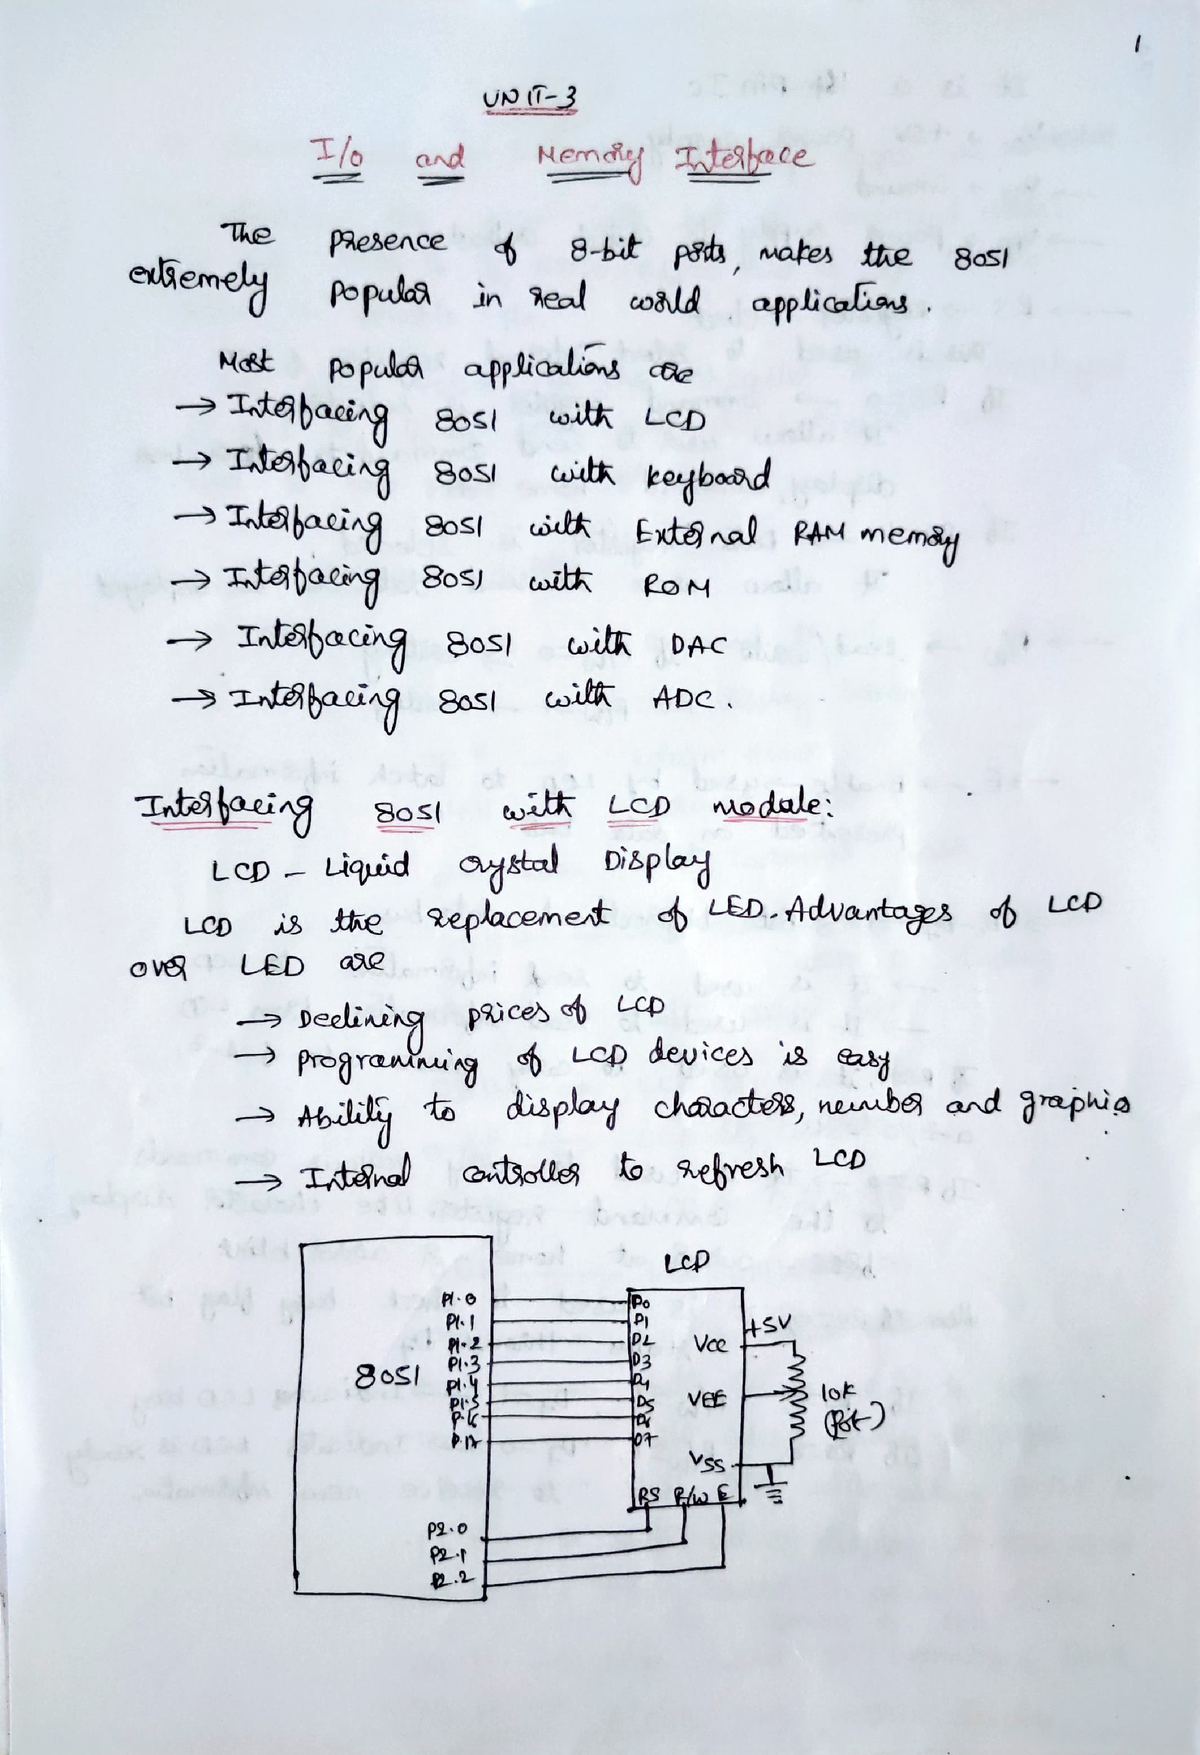 1
UNIT-3
I/o and Memory Interface
The presence of 8-bit ports, makes the 8051
extremely popular in real world applications.
Most popular applications are
→ Interfacing 8051 with LCD
→ Interfacing 8051 with keyboard
→ Interfacing 8051 with External RAM memory
→ Interfacing 8051 with ROM
→ Interfacing 8051 with DAC
→ Interfacing 8051 with ADC.
Interfacing 8051 with LCD module:
LCD - Liquid crystal Display
LCD is the replacement of LED. Advantages of LCD
over LED are
→ Declining prices of LCD
→ programming of LCD devices is easy
→ Ability to display characters, number and graphics
→ Internal controller to refresh LCD
LCD
8051
P1.0
P1.1
P1.2
P1.3
P1.4
P1.5
P.16
P.17
P2.0
P2.1
P2.2
D0
D1
D2
D3
D4
D5
D6
D7
VCC
+5V
VEE
10K
(Pot)
VSS
RS R/W E